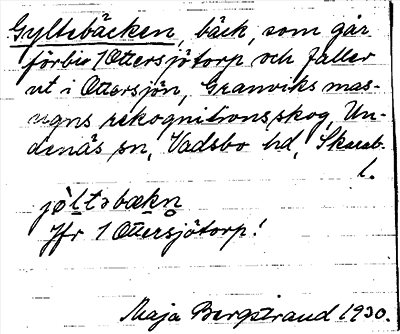 Gyltebäcken, bäck, som går
förbi 1 Ottersjötorp och faller
ut i Ottersjön, Granviks mas-
ugns rekognitionsskog, Un-
denäs sn, Vadsbo hd, Skarab.
l.
jò̀ltəbækn̥
Jfr 1 Ottersjötorp!
Maja Bergstrand 1930.